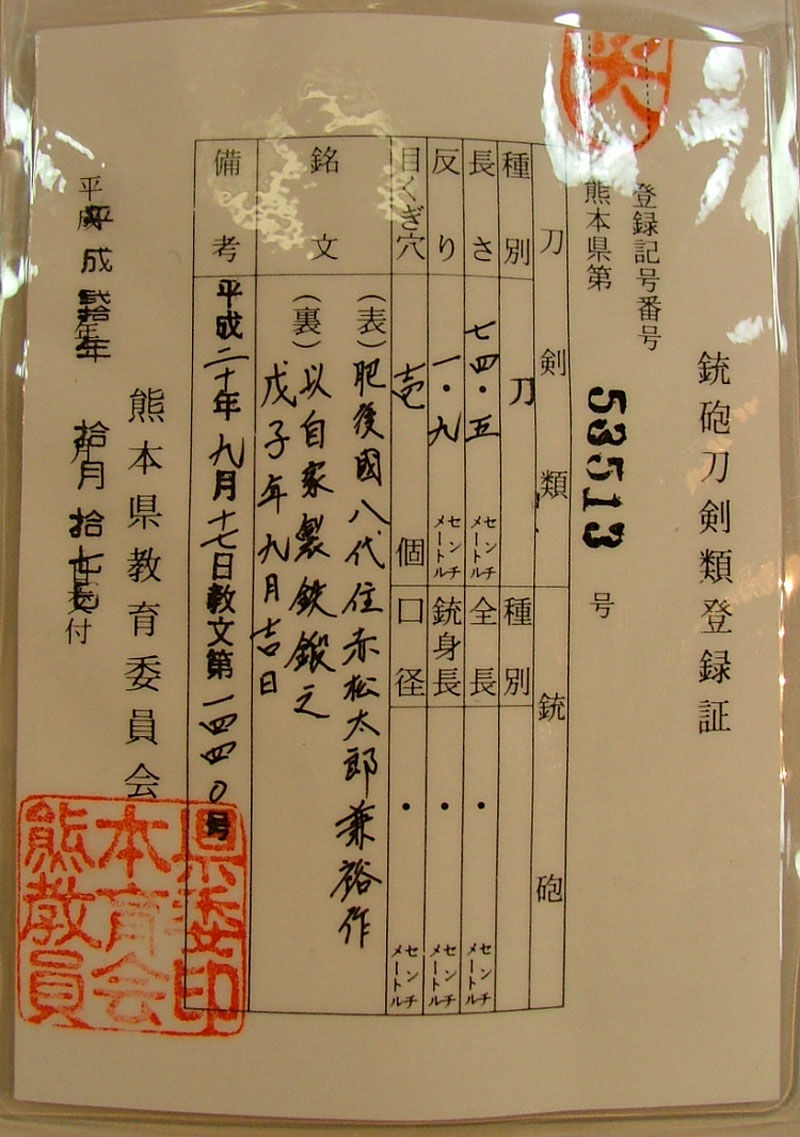 銃砲刀剣類登録証
登録記号番号
熊本県第 53513 号
刀剣類
種別 刀
長さ 七四・五 センチメートル
反り 一・九 センチメートル
目くぎ穴 壱 個
銃砲
種別
全長 ・ センチメートル
銃身長 ・ センチメートル
口径 ・ センチメートル
銘文
(表)肥後國八代住赤松太郎兼裕作
(裏)以自家製鉄鍛之
戊子年九月吉日
備考 平成二十年九月十七日教文第一四四〇号
平成弐拾年 拾月 拾七日交付
熊本県教育委員会
県委印
本育会
熊教員